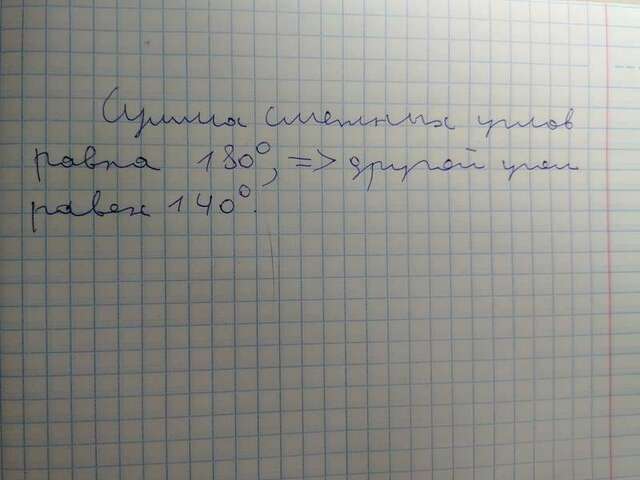 Сумма смежных углов
равна 180°, => другой угол
равен 140°.